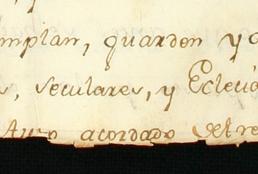 mplan, guarden y
s, seculares, y Eclecia
Auto acordado